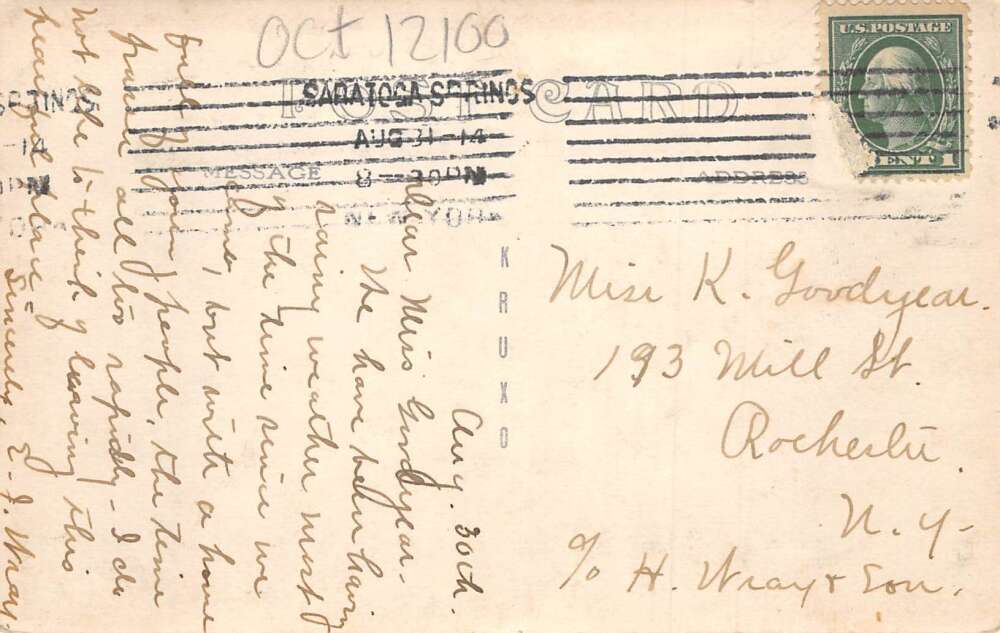 Oct 12/00
POST CARD
SARATOGA SPRINGS
AUG 31-14
8-30PM
NEW YORK
U.S. POSTAGE
CENT 1
MESSAGE
ADDRESS
KRUXO
Aug. 30th.
Dear Miss Goodyear-
We have been having
rainy weather most
of the time since we
came, but with a house
full of young people, the time
passes all too rapidly - I do
not like to think of leaving this
beautiful place -
Sincerely, E. J. Wray.
Miss K. Goodyear.
193 Mill St.
Rochester.
N. Y-
c/o H. Wray & Son.